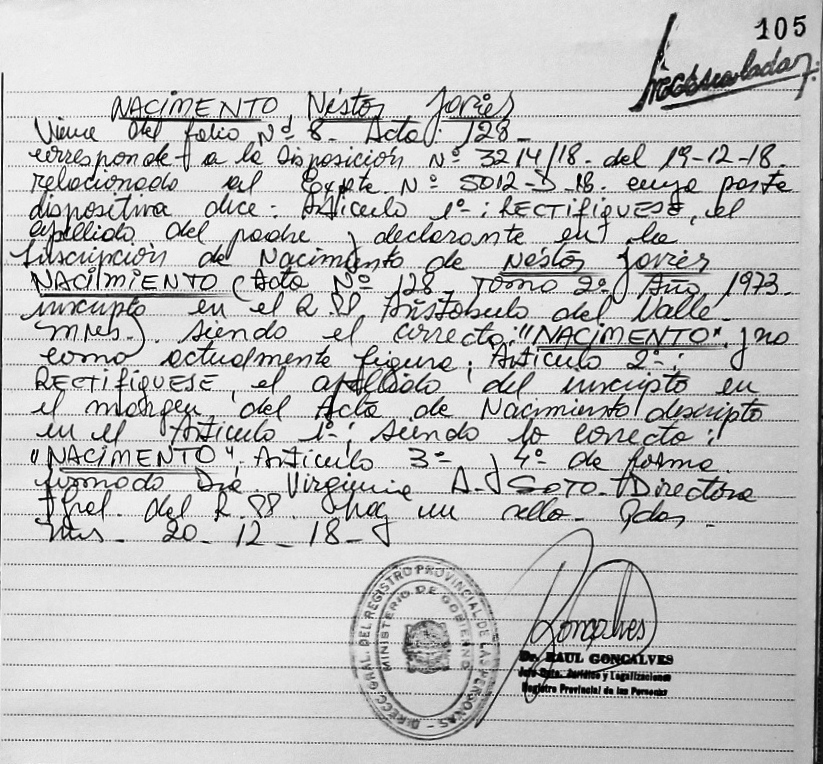 105
NACIMENTO Néstor Javier
Viene del folio Nº 8. Acta: 128
corresponde a la Disposición Nº 3214/18. del 19-12-18.
relacionado al Expte. Nº 5012-D-18. cuya parte
dispositiva dice: Artículo 1º: RECTIFÍQUESE, el
apellido del padre y declarante en la
Inscripción de Nacimiento de Néstor Javier
NACIMIENTO (Acta Nº 128 Tomo 2º Año 1973
inscripto en el R.PP. Aristóbulo del Valle
Mnes.) siendo el correcto: "NACIMENTO" y no
como actualmente figura; Artículo 2º:
RECTIFÍQUESE, el apellido del inscripto en
el margen del Acta de Nacimiento descripto
en el Artículo 1º; siendo lo correcto:
"NACIMENTO". Artículo 3º y 4º de forma.
firmado Dra. Virginia A. SOTO. Directora
Gral. del R.PP. Hay un sello. Pdas.
Mnes. 20-12-18
DIREC. GRAL. DEL REGISTRO PROVINCIAL DE LAS PERSONAS
MINISTERIO DE GOBIERNO
Goncalves
Dr. RAUL GONCALVES
Jefe Dpto. Jurídico y Legalizaciones
Registro Provincial de las Personas